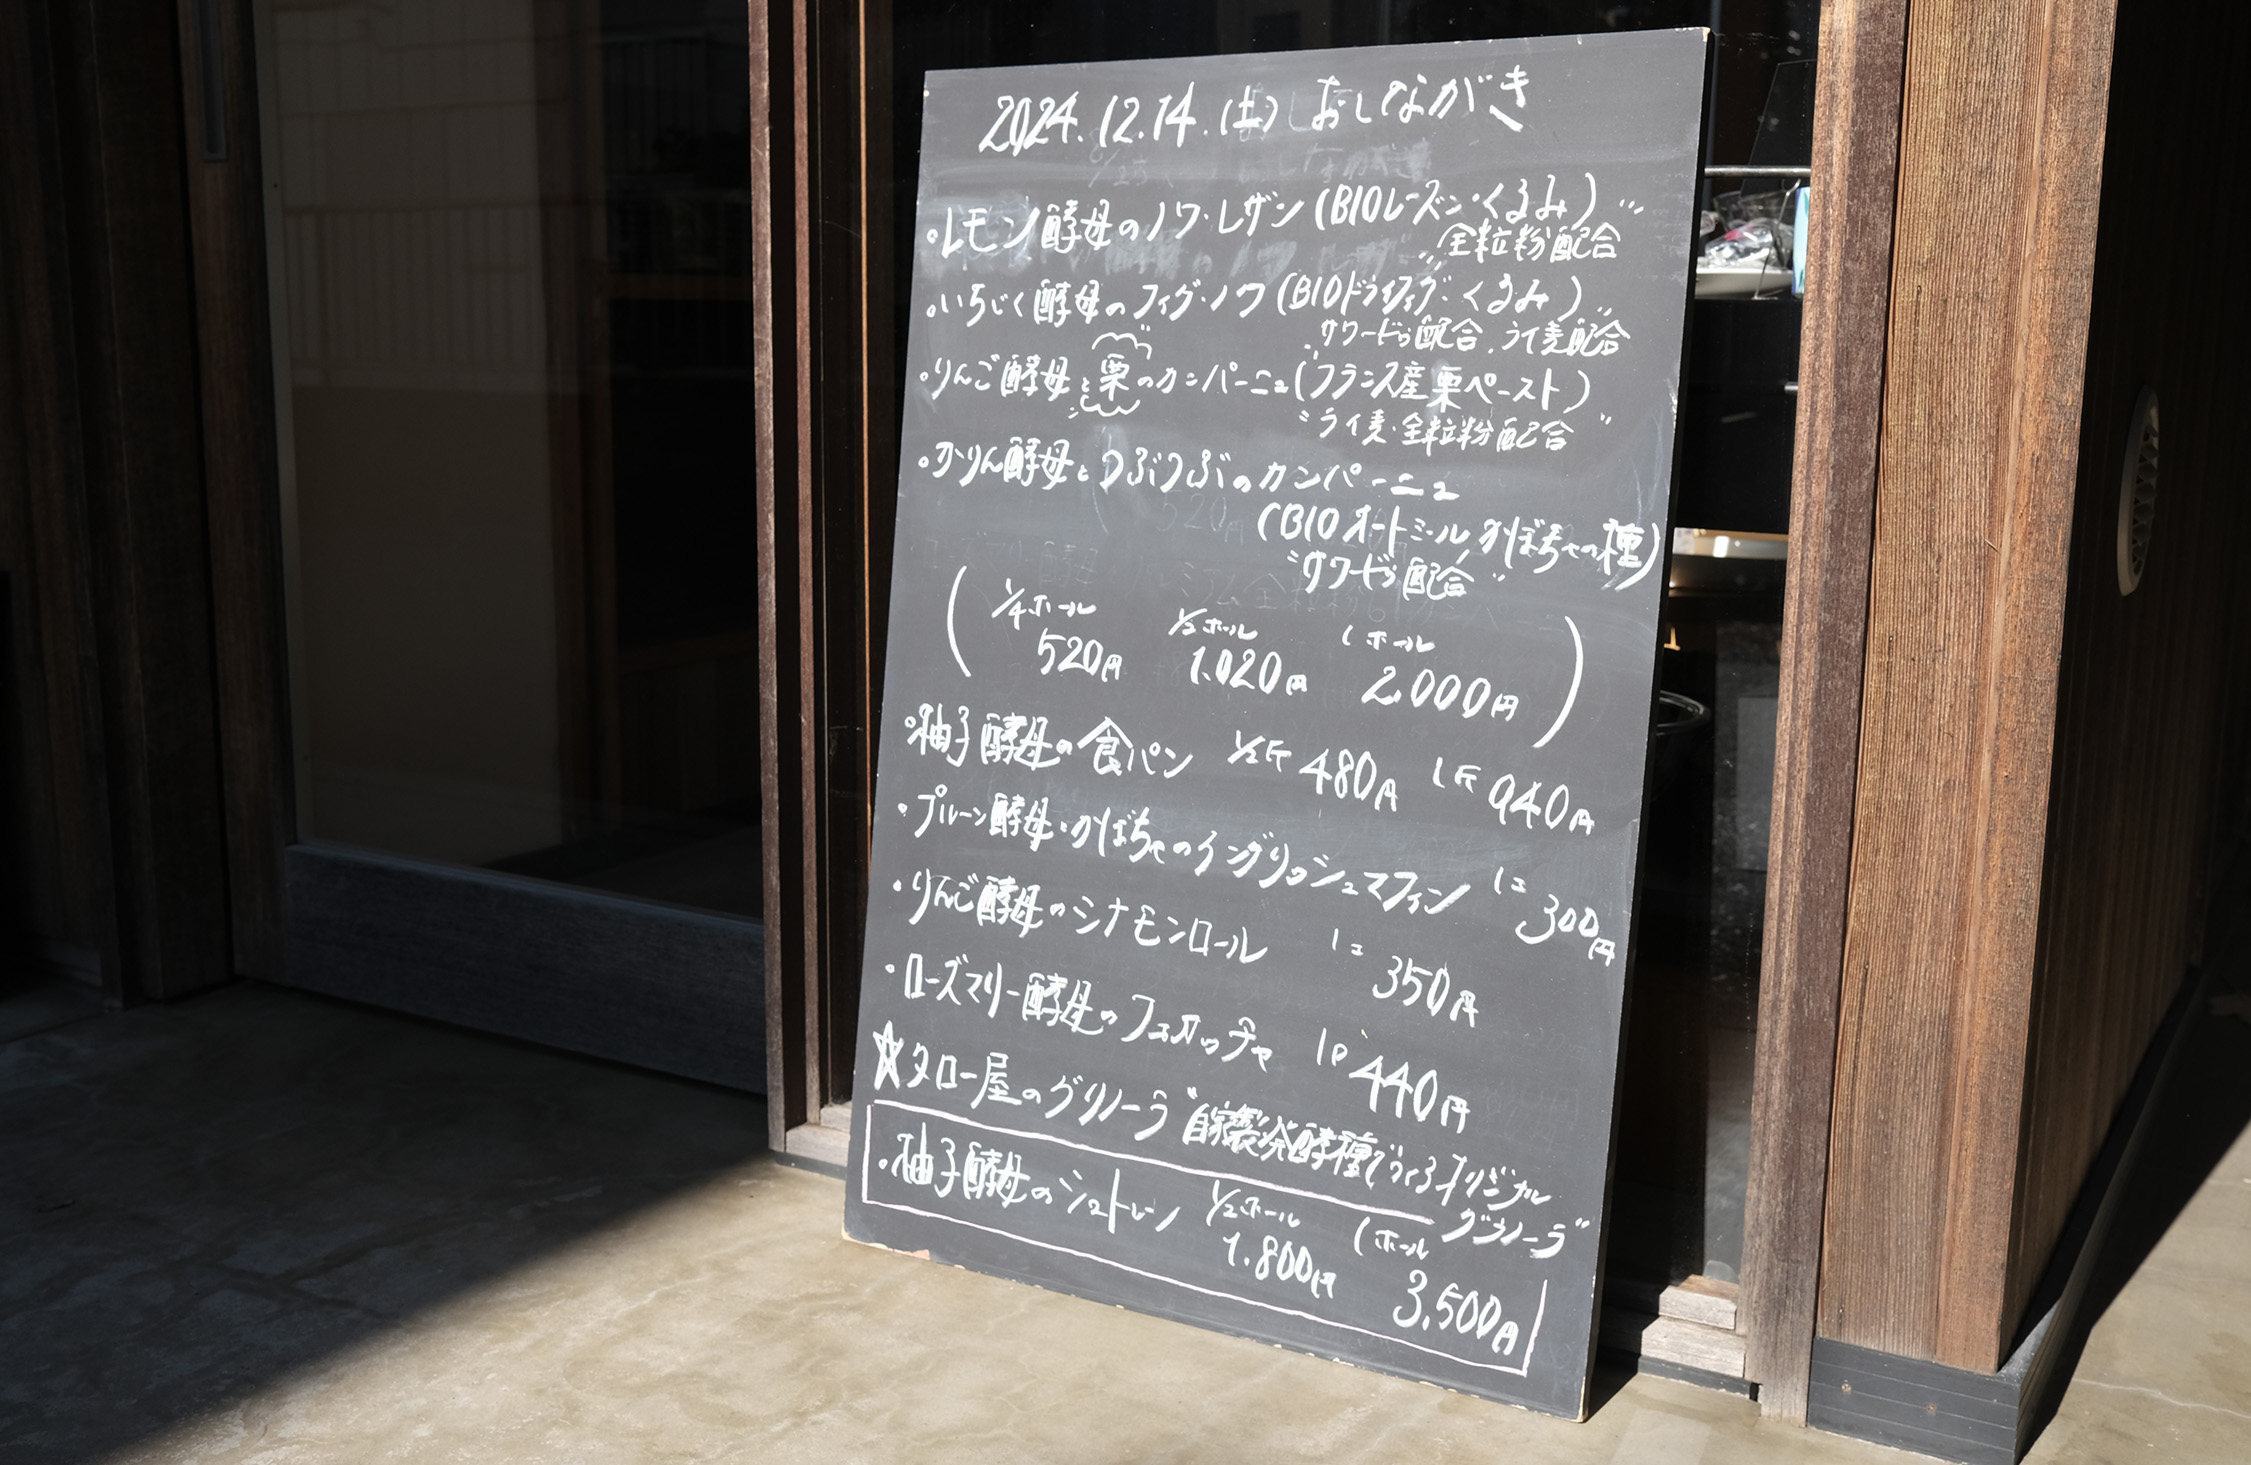 2024.12.14.(土) おしながき
・レモン酵母のノワ・レザン(BIOレーズン・くるみ)
"全粒粉配合"
・いちじく酵母のフィグ・ノワ(BIOドライフィグ・くるみ)
"サワードゥ配合、ライ麦配合"
・りんご酵母と栗のカンパーニュ(フランス産栗ペースト)
"ライ麦・全粒粉配合"
・かりん酵母とつぶつぶのカンパーニュ
(BIOオートミール かぼちゃの種)
"サワードゥ配合"
(1/4ホール 1/2ホール 1ホール
520円 1,020円 2,000円)
・柚子酵母の食パン 1/2斤 480円 1斤 940円
・プルーン酵母・かぼちゃのイングリッシュマフィン 1コ 300円
・りんご酵母のシナモンロール 1コ 350円
・ローズマリー酵母のフォカッチャ 1P 440円
☆タロー屋のグラノーラ "自家製発酵種でつくるオリジナル
グラノーラ"
・柚子酵母のシュトーレン 1/2ホール 1ホール
1,800円 3,500円